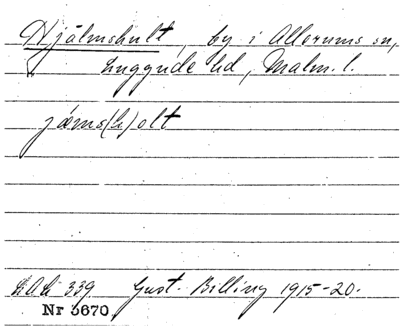 Hjälmshult, by i Allerums sn,
Luggude hd, Malm. l.
jæms(h)olt
LAL 339 Gust. Billing 1915-20.
Nr 5670